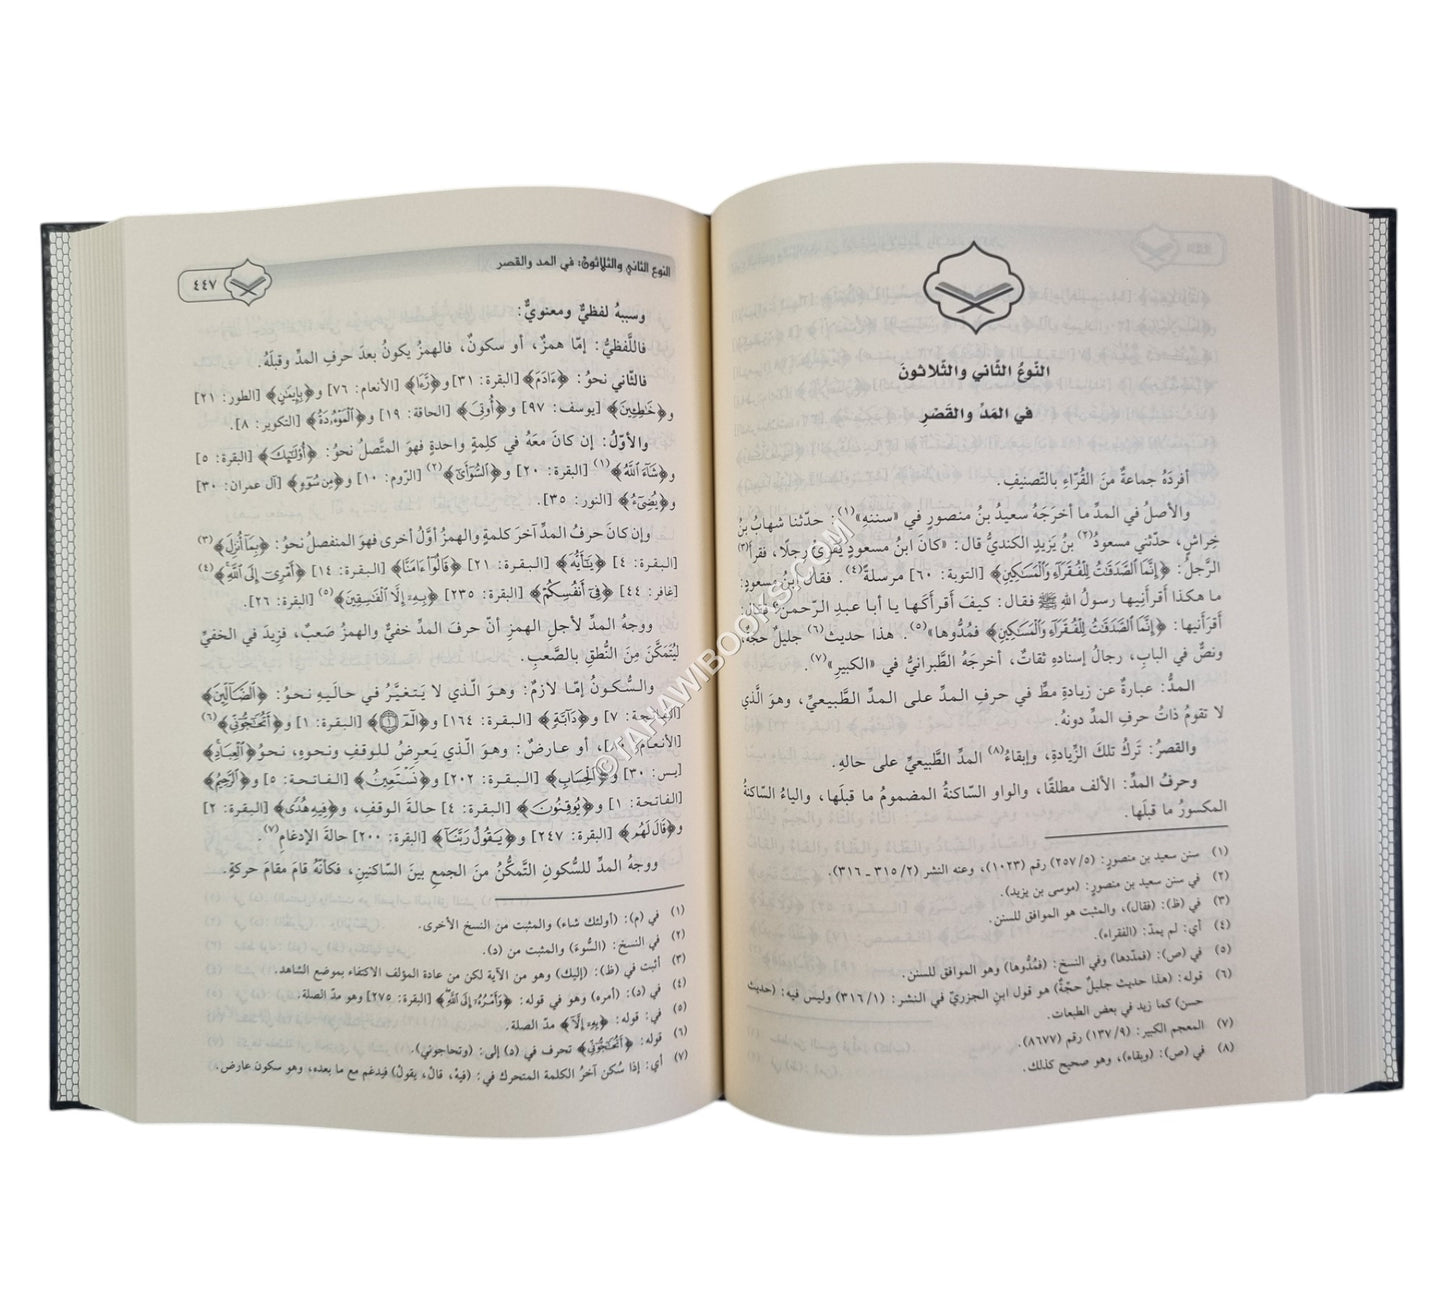 النّوعُ الثّاني والثّلاثونَ
في المَدِّ والقَصْرِ
أفرَدَهُ جماعةٌ منَ القُرّاءِ بالتّصنيفِ.
والأصلُ في المدِّ ما أخرَجَهُ سعيدُ بنُ منصورٍ في «سننهِ»(١): حدّثنا شهابُ بنُ
خِراشٍ، حدّثني مسعودُ(٢) بنُ يَزيدِ الكنديُّ قال: «كانَ ابنُ مسعودٍ يُقرِئُ رجلًا، فقرأَ(٣)
الرَّجلُ: ﴿إِنَّمَا ٱلصَّدَقَٰتُ لِلْفُقَرَآءِ وَٱلْمَسَٰكِينِ﴾ [التوبة: ٦٠] مرسلةً(٤). فقالَ ابنُ مسعودٍ:
ما هكذا أقرأَنِيها رسولُ اللهِ ﷺ فقال: كيفَ أقرأَكَها يا أبا عبدِ الرّحمنِ؟ قال:
أقرَأَنيها: ﴿إِنَّمَا ٱلصَّدَقَٰتُ لِلْفُقَرَآءِ وَٱلْمَسَٰكِينِ﴾ فمُدُّوها»(٥). هذا حديث(٦) جليلٌ حجّة،
ونصٌّ في البابِ، رجالُ إسنادِهِ ثقاتٌ، أخرجَهُ الطَّبرانيُّ في «الكبيرِ»(٧).
المـدُّ: عبارةٌ عن زيادةِ مطٍّ في حرفِ المـدِّ على المـدِّ الطَّبيعيِّ، وهوَ الَّذي
لا تقومُ ذاتُ حرفِ المدِّ دونهُ.
والقصرُ: تَركُ تلكَ الزِّيادةِ، وإبقاءُ(٨) المدِّ الطَّبيعيِّ على حالهِ.
وحرفُ المدِّ: الألف مطلقًا، والواو السّاكنةُ المضمومُ ما قبلَها، والياءُ السّاكنةُ
المكسورُ ما قبلَها.
(١) سنن سعيد بن منصور: (٢٥٧/٥) رقم (١٠٢٣)، وعنه النشر (٣١٥/٢ ـ ٣١٦).
(٢) في سنن سعيد بن منصور: (موسى بن يزيد).
(٣) في (ظ): (فقال)، والمثبت هو الموافق للسنن.
(٤) أي: لم يمدّ: (الفقراء).
(٥) في (ص): (فمدّدها) وفي النسخ: (فمُدُّوها) وهو الموافق للسنن.
(٦) قوله: (هذا حديث جليلٌ حجّةٌ) هو قول ابنِ الجزريِّ في النشر: (٣١٦/١) وليس فيه: (حديث
حسن) كما زيد في بعض الطبعات.
(٧) المعجم الكبير: (١٣٧/٩) رقم (٨٦٧٧).
(٨) في (ص): (وبقاء)، وهو صحيح كذلك.
النوع الثاني والثلاثون: في المد والقصر
٤٤٧
وسببهُ لفظيٌّ ومعنويٌّ:
فاللَّفظيُّ: إمّا همزٌ، أو سكونٌ، فالهمزُ يكونُ بعدَ حرفِ المدِّ وقبلَهُ.
فالثّاني نحوُ: ﴿ءَادَمَ﴾ [البقرة: ٣١] و﴿رَّءَا﴾ [الأنعام: ٧٦] و﴿بِإِيمَٰنٍ﴾ [الطور: ٢١]
و﴿خَٰطِـِٔينَ﴾ [يوسف: ٩٧] و﴿أُوتِىَ﴾ [الحاقة: ١٩] و﴿ٱلْمَوْءُۥدَةُ﴾ [التكوير: ٨].
والأوّلُ: إن كانَ معَهُ في كلِمةٍ واحدةٍ فهوَ المتَّصلُ نحوُ: ﴿أُو۟لَٰٓئِكَ﴾ [البقرة: ٥]
و﴿شَآءَ ٱللَّهُ﴾(١) [البقرة: ٢٠] و﴿ٱلسُّوٓأَىٰ﴾(٢) [الرّوم: ١٠] و﴿مِن سُوٓءٍ﴾ [آل عمران: ٣٠]
و﴿يُضِىٓءُ﴾ [النور: ٣٥].
وإن كانَ حرفُ المدِّ آخرَ كلمةٍ والهمزُ أوَّلُ أخرى فهوَ المنفصلُ نحوُ: ﴿بِمَآ أُنزِلَ﴾(٣)
[البقرة: ٤] ﴿يَٰٓأَيُّهَا﴾ [البقرة: ٢١] ﴿قَالُوٓا۟ ءَامَنَّا﴾ [البقرة: ١٤] ﴿أَمْرِىٓ إِلَى ٱللَّهِ﴾(٤)
[غافر: ٤٤] ﴿فِىٓ أَنفُسِكُمْ﴾ [البقرة: ٢٣٥] ﴿بِهِۦٓ إِلَّا ٱلْفَٰسِقِينَ﴾(٥) [البقرة: ٢٦].
ووجهُ المدِّ لأجلِ الهمزِ أنّ حرفَ المدِّ خفيٌّ والهمزُ صَعبٌ، فزِيدَ في الخفيِّ
ليُتَمَكَّنَ مِنَ النُّطقِ بالصَّعبِ.
والسُّكونُ إمّا لازمٌ: وهوَ الّذي لا يَتغيَّرُ في حاليهِ نحوُ: ﴿ٱلضَّآلِّينَ﴾
[الفاتحة: ٧] و﴿دَآبَّةٍ﴾ [البقرة: ١٦٤] و﴿الٓمٓ﴾ [البقرة: ١] و﴿أَتُحَٰٓجُّوٓنِّى﴾(٦)
[الأنعام: ٨٠]، أو عارضٌ: وهوَ الَّذي يَعرِضُ للوقفِ ونحوِهِ، نحوُ ﴿ٱلْعِبَادِ﴾
[يس: ٣٠] و﴿ٱلْحِسَابِ﴾ [البقرة: ٢٠٢] و﴿نَسْتَعِينُ﴾ [الفاتحة: ٥] و﴿ٱلرَّحِيمِ﴾
[الفاتحة: ١] و﴿يُوقِنُونَ﴾ [البقرة: ٤] حالةَ الوقفِ، و﴿فِيهِ هُدًى﴾ [البقرة: ٢]
و﴿قَالَ لَهُمْ﴾ [البقرة: ٢٤٧] و﴿يَقُولُ رَبَّنَآ﴾ [البقرة: ٢٠٠] حالةَ الإدغامِ(٧).
ووجهُ المدِّ للسُّكونِ التَّمكُّنُ منَ الجمعِ بينَ السّاكنينِ، فكأنَّهُ قامَ مقامَ حركةٍ.
(١) في (م): (أولئك شاء) والمثبت من النسخ الأخرى.
(٢) في النسخ: (السُّوءَ) والمثبت من (د).
(٣) أثبت في (ظ): (إليك) وهو من الآية لكن من عادة المؤلف الاكتفاء بموضع الشاهد.
(٤) في (د): (أمره) وهو في قوله: ﴿وَأَمْرُهُۥٓ إِلَى ٱللَّهِ﴾ [البقرة: ٢٧٥] وهو مدّ الصلة.
(٥) في: قوله: ﴿بِهِۦٓ إِلَّا﴾ مدّ الصلة.
(٦) قوله: ﴿أَتُحَٰٓجُّوٓنِّى﴾ تحرف في (د) إلى: (وتحاجوني).
(٧) أي: إذا سُكن آخرُ الكلمة المتحرك في: (فيهْ، قالْ، يقولْ) فيدغم مع ما بعده، وهو سكون عارض.
©TAHAWIBOOKS.COM